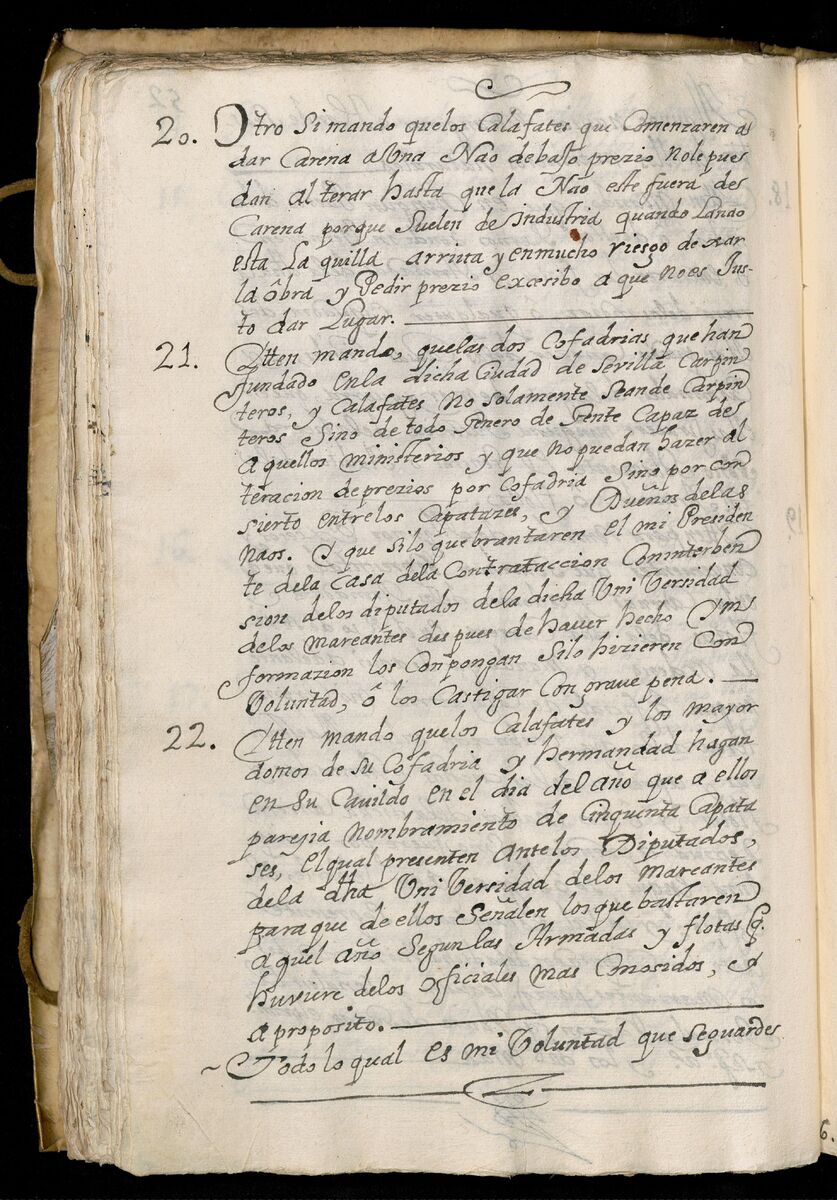 20. Otro Si mando quelos Calafates que Comenzaren a
dar Carena a Una Nao debajo prezio Nole pue
dan alterar hasta que la Nao este fuera de
Carena porque Suelen de Industria quando Lanao
esta La quilla arriva y enmucho riesgo dexar
la obra y Pedir prezio excesibo a que noes Jus-
to dar Lugar.
21. Itten mando, quelas dos Cofadrias que han
fundado enla dicha Ciudad de Sevilla Carpin
teros, y Calafates No solamente Seande Carpin
teros Sino de todo Genero de Gente Capaz de
aquellos ministerios y que no puedan hazer al
teracion de prezios por Cofadria Sino por con
sierto entrelos Capatazes, y Dueños delas
Naos. Y que silo quebrantaren el mi Presiden
te dela Casa dela Contrataccion Coninterben
sion delos diputados dela dicha Uni Versidad
delos Mareantes despues de haver hecho Yn
formazion los Conpongan Silo hizieren Con
Voluntad, ô los Castigar Con grave pena.
22. Itten mando quelos Calafates y los mayor
domos de su Cofadria y hermandad hagan
en Su Cavildo en el dia del año que a ellos
parejia nombramiento de Cinquenta Capata
ses, el qual presenten Antelos Diputados,
dela dha Uni Versidad delos Mareantes
para que de ellos Señalen los que bastaren
aquel año Segun las Armadas y flotas q.
huviere delos oficiales mas Conosidos, y
a proposito.
~ Todo lo qual es mi Voluntad que Seguarde